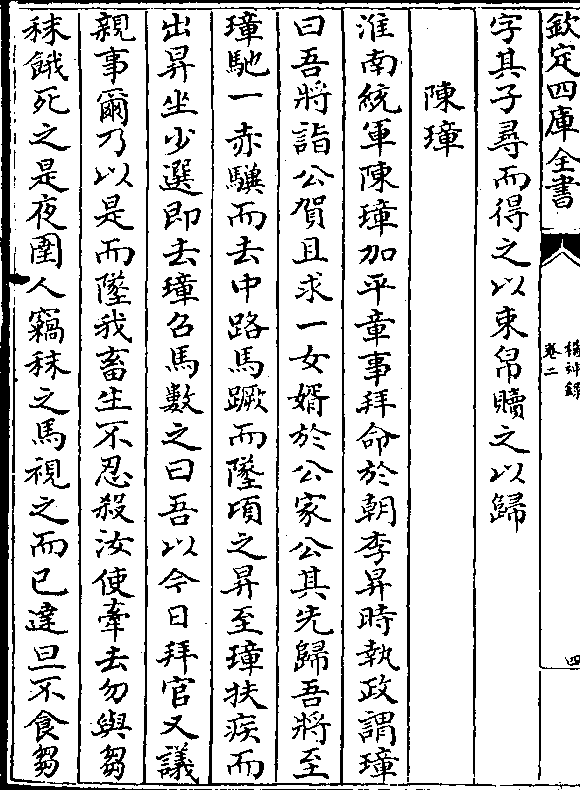 欽定四庫全書
稽神錄
卷二
四
字其子尋而得之以束帛贖之以歸
陳璋
淮南統軍陳璋加平章事拜命於朝李昇時執政謂璋
曰吾將詣公賀且求一女婿於公家公其先歸吾將至
璋馳一赤驥而去中路馬蹶而墜頃之昇至璋扶疾而
出昇坐少選即去璋召馬數之曰吾以今日拜官又議
親事爾乃以是而墜我畜生不忍殺汝使牽去勿與芻
秣餓死之是夜圉人竊秣之馬視之而已達旦不食芻